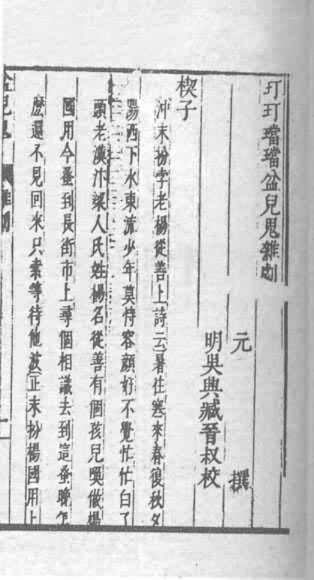 玎玎璫璫盆兒鬼雜劇
元 撰
明吳興臧晉叔校
楔子
沖末扮孛老楊從善上詩云暑往寒來春復秋夕
陽西下水東流少年莫恃容顏好不覺忙忙白了
頭老漢汴梁人氏姓楊名從善有個孩兒喚做楊
國用今蚤到長街市上尋個相識去到這蚤晚怎
麼還不見回來只索等待他波正末扮楊國用上
盆兒鬼 雜劇 一